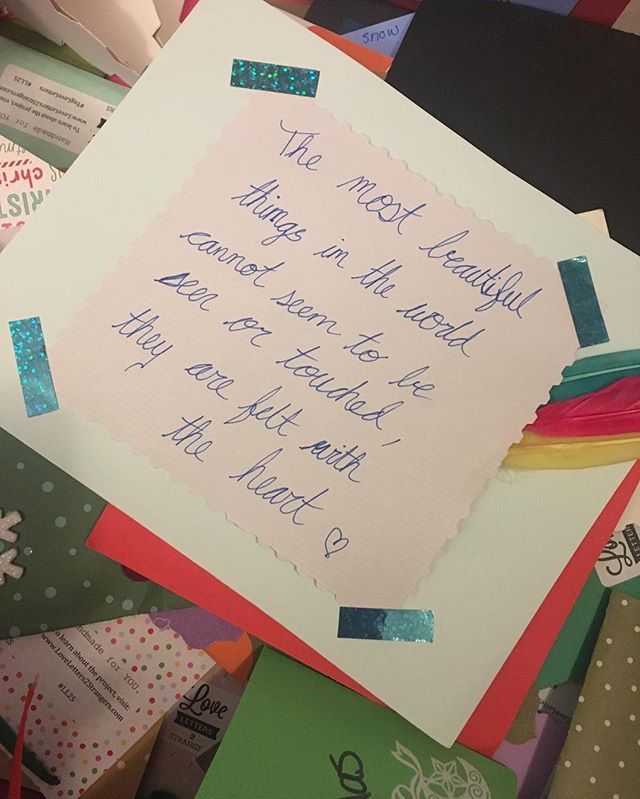 The most beautiful
things in the world
cannot seem to be
seen or touched,
they are felt with
the heart ♡
snow
Handmade for YOU.
To learn about the project, visit:
www.LoveLetters2Strangers.com
#LL2S
chris
andmade for YOU.
o learn about the project, visit:
www.LoveLetters2Strangers.com
#LL2S
Love
LETTERS
2
STRANGE